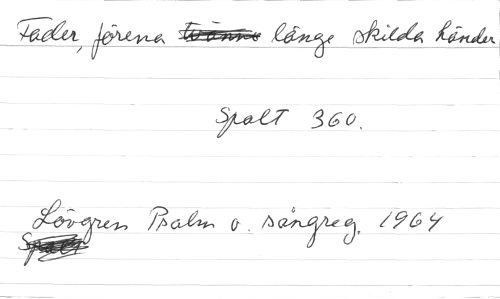 Fader, förena länge skilda händer
Spalt 360.
Lövgren Psalm o. sångreg. 1964